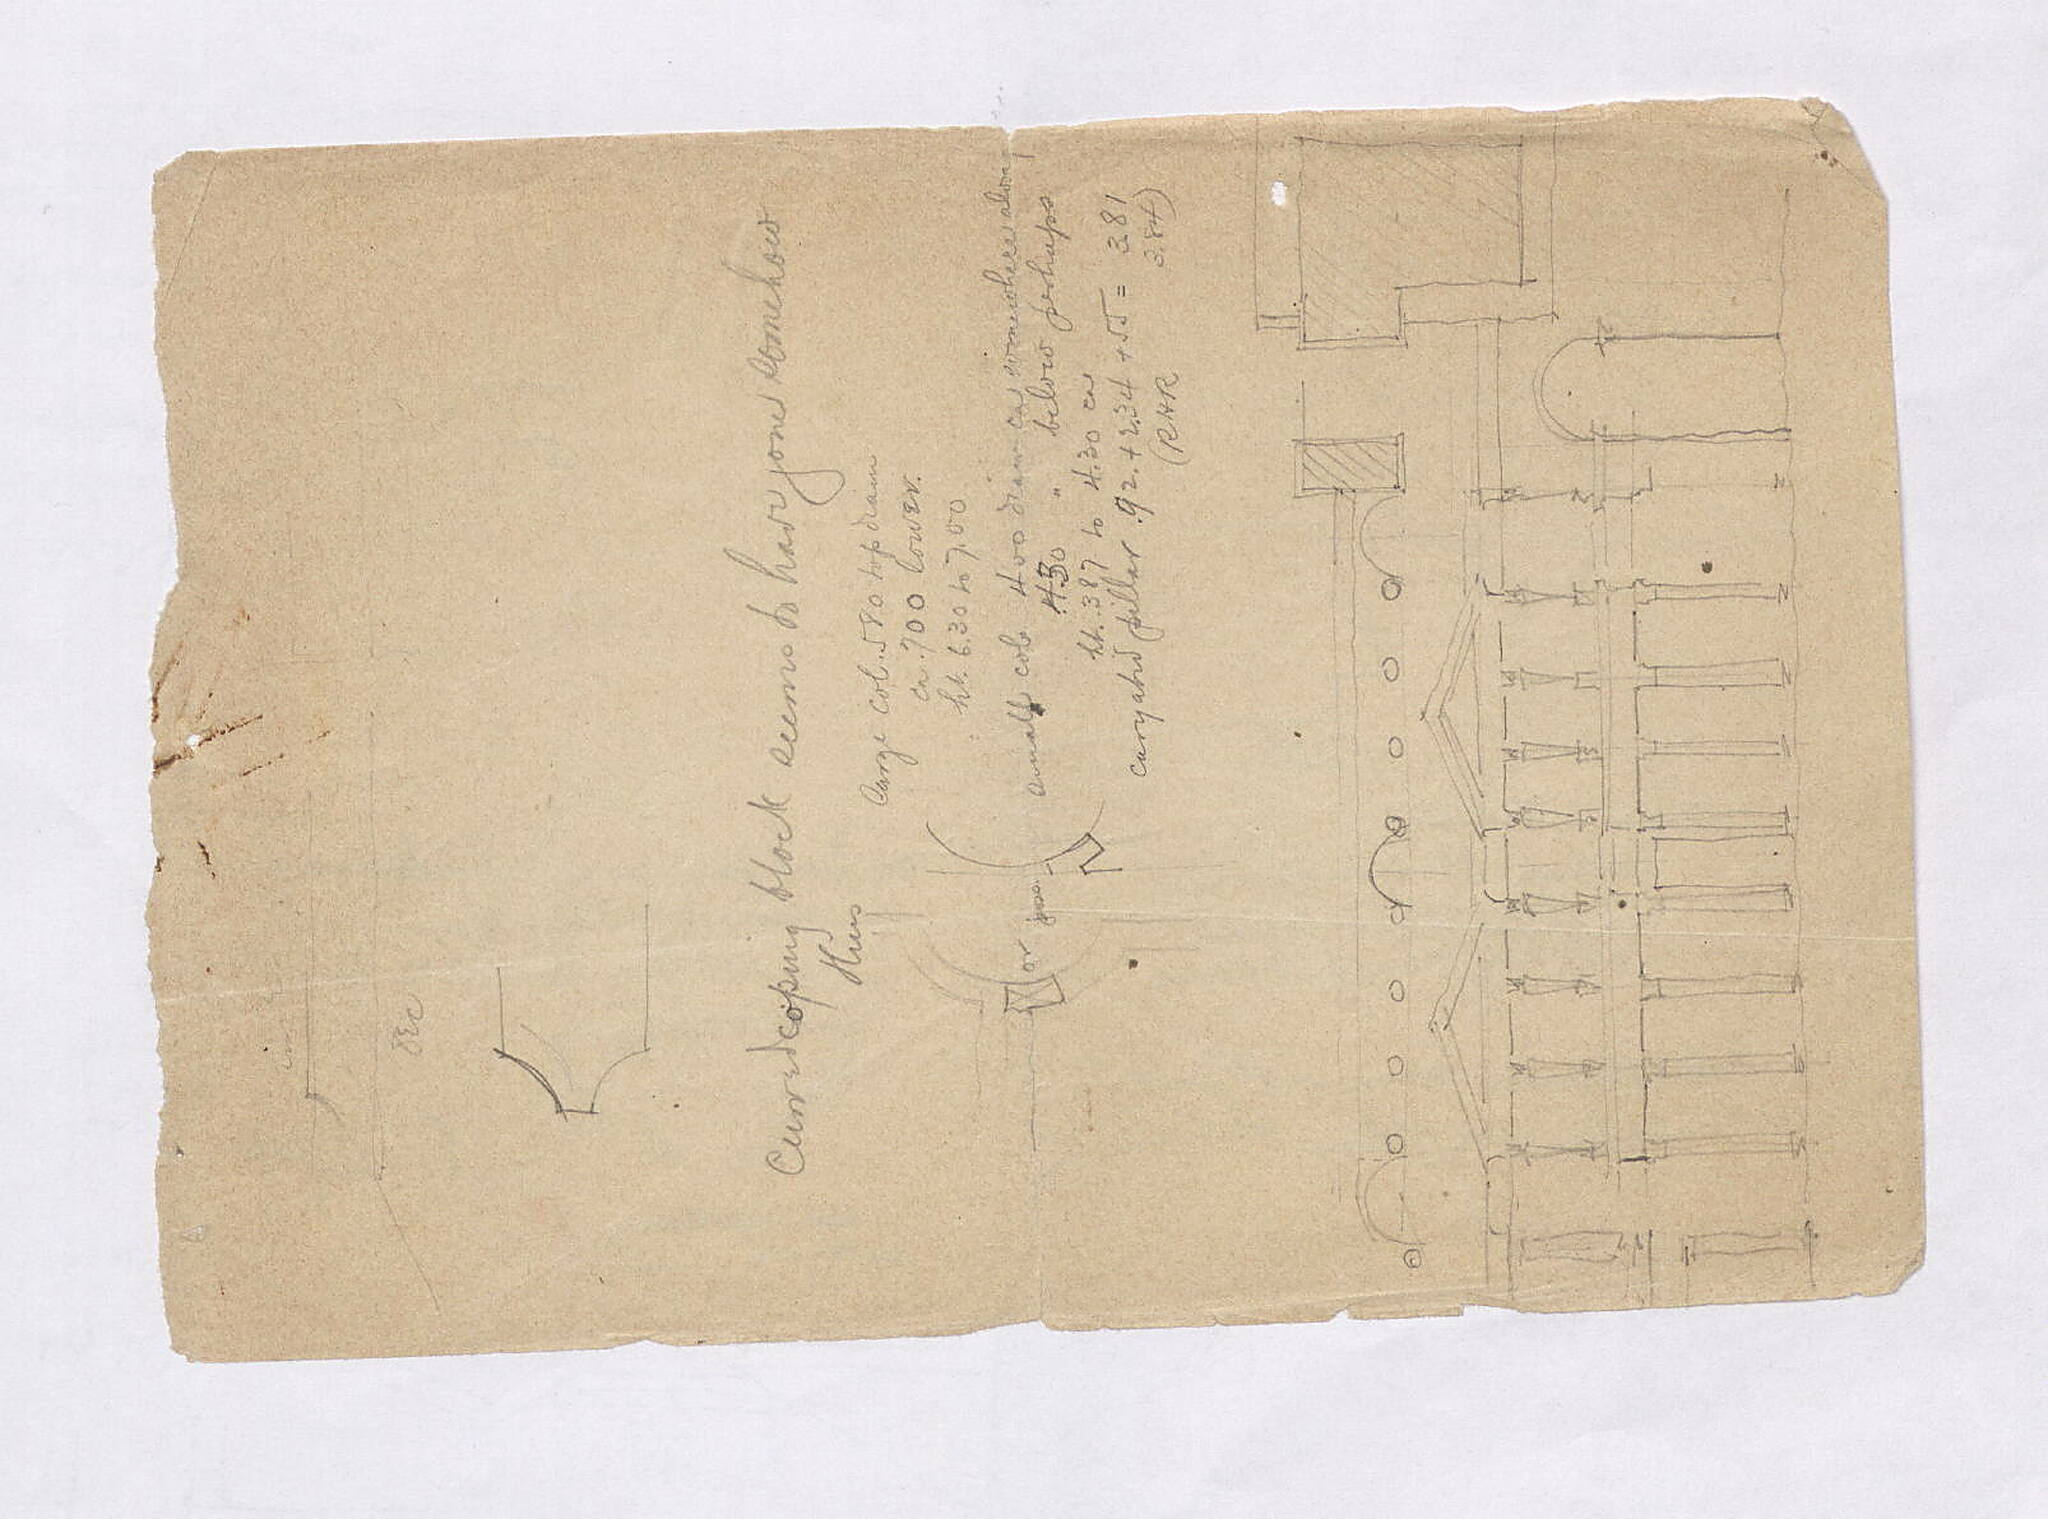 Curved coping block seems to have gone somehow
thus
Large col. .580 top diam
ca .700 lower.
ht. 6.30 to 7.00
small col. .400 diam ca somewhere above
.450 " below perhaps
ht. 3.87 to 4.30 ca
caryatid pillar .92 + 2.34 + .55 = 3.81
(RHK 3.84)
or